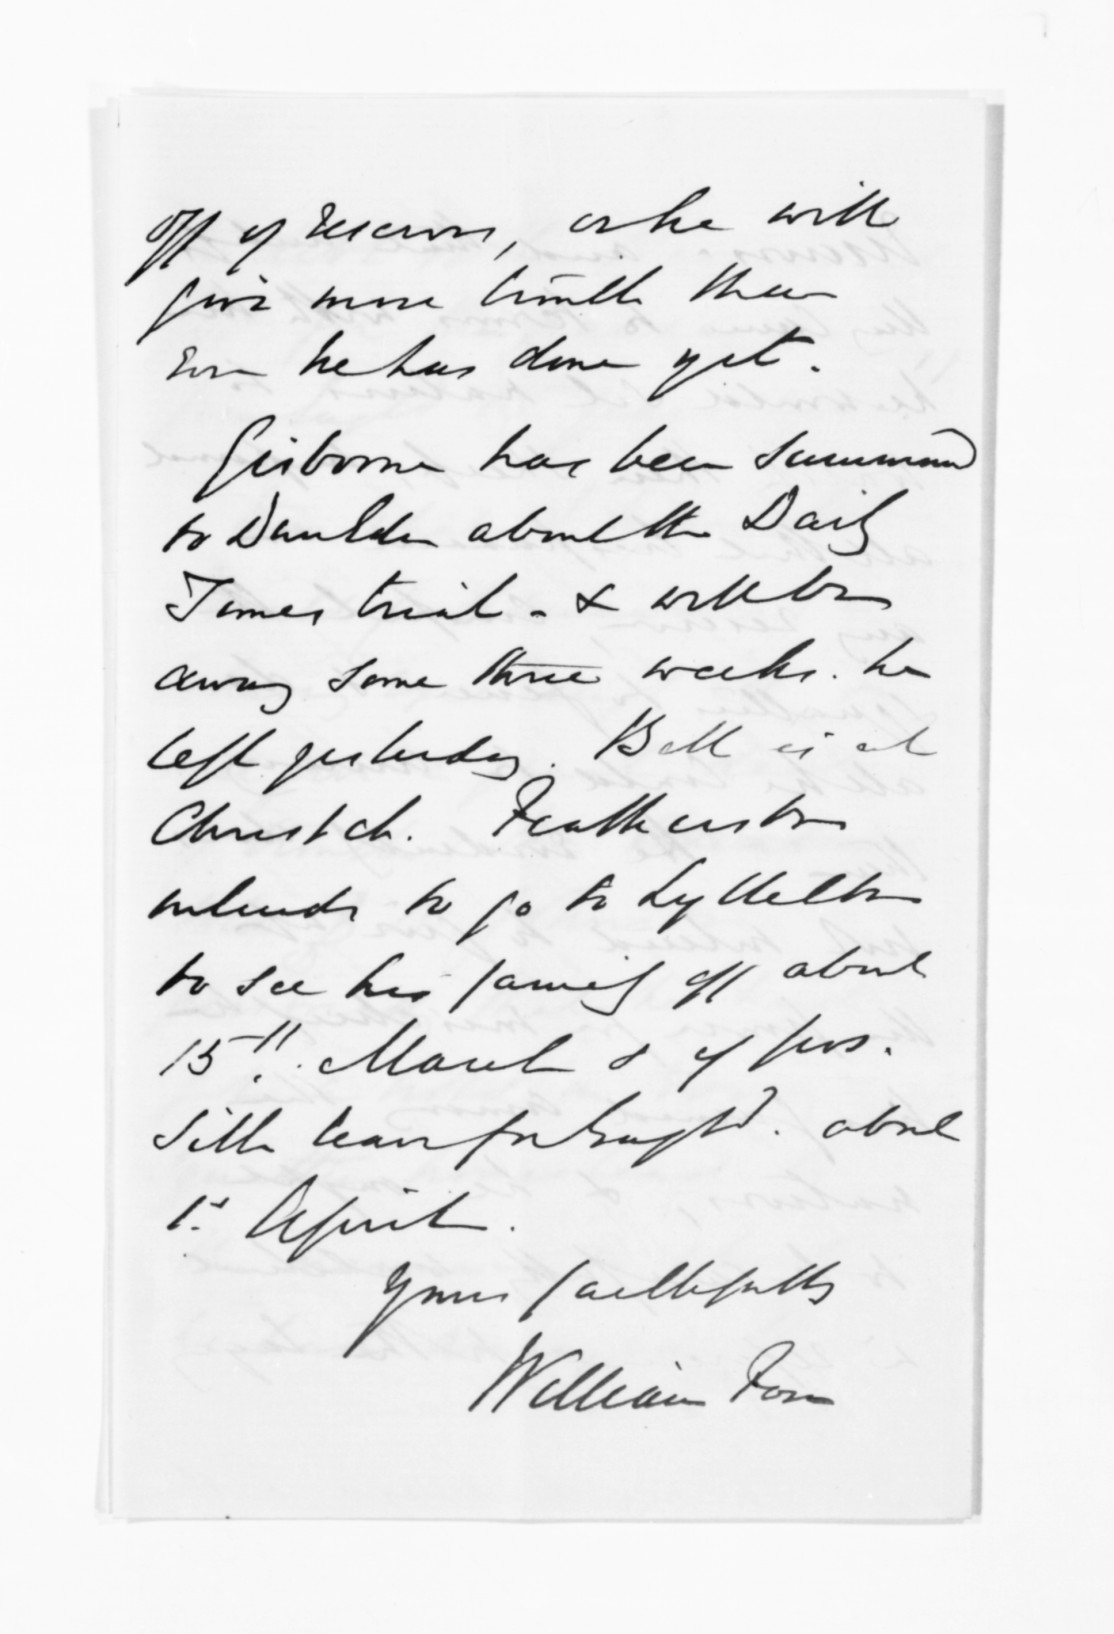 off of reserves, or he will
give more trouble than
ever he has done yet.
Gisborne has been summoned
to Dunedin about the Daily
Times trial - & will be
away some three weeks. he
left yesterday. Bell is at
Christch. Featherston
intends to go to Lyttelton
to see his family off about
15th. March & if pos-
sible leave for Engld. about
1st April.
Yours faithfully
William Fox